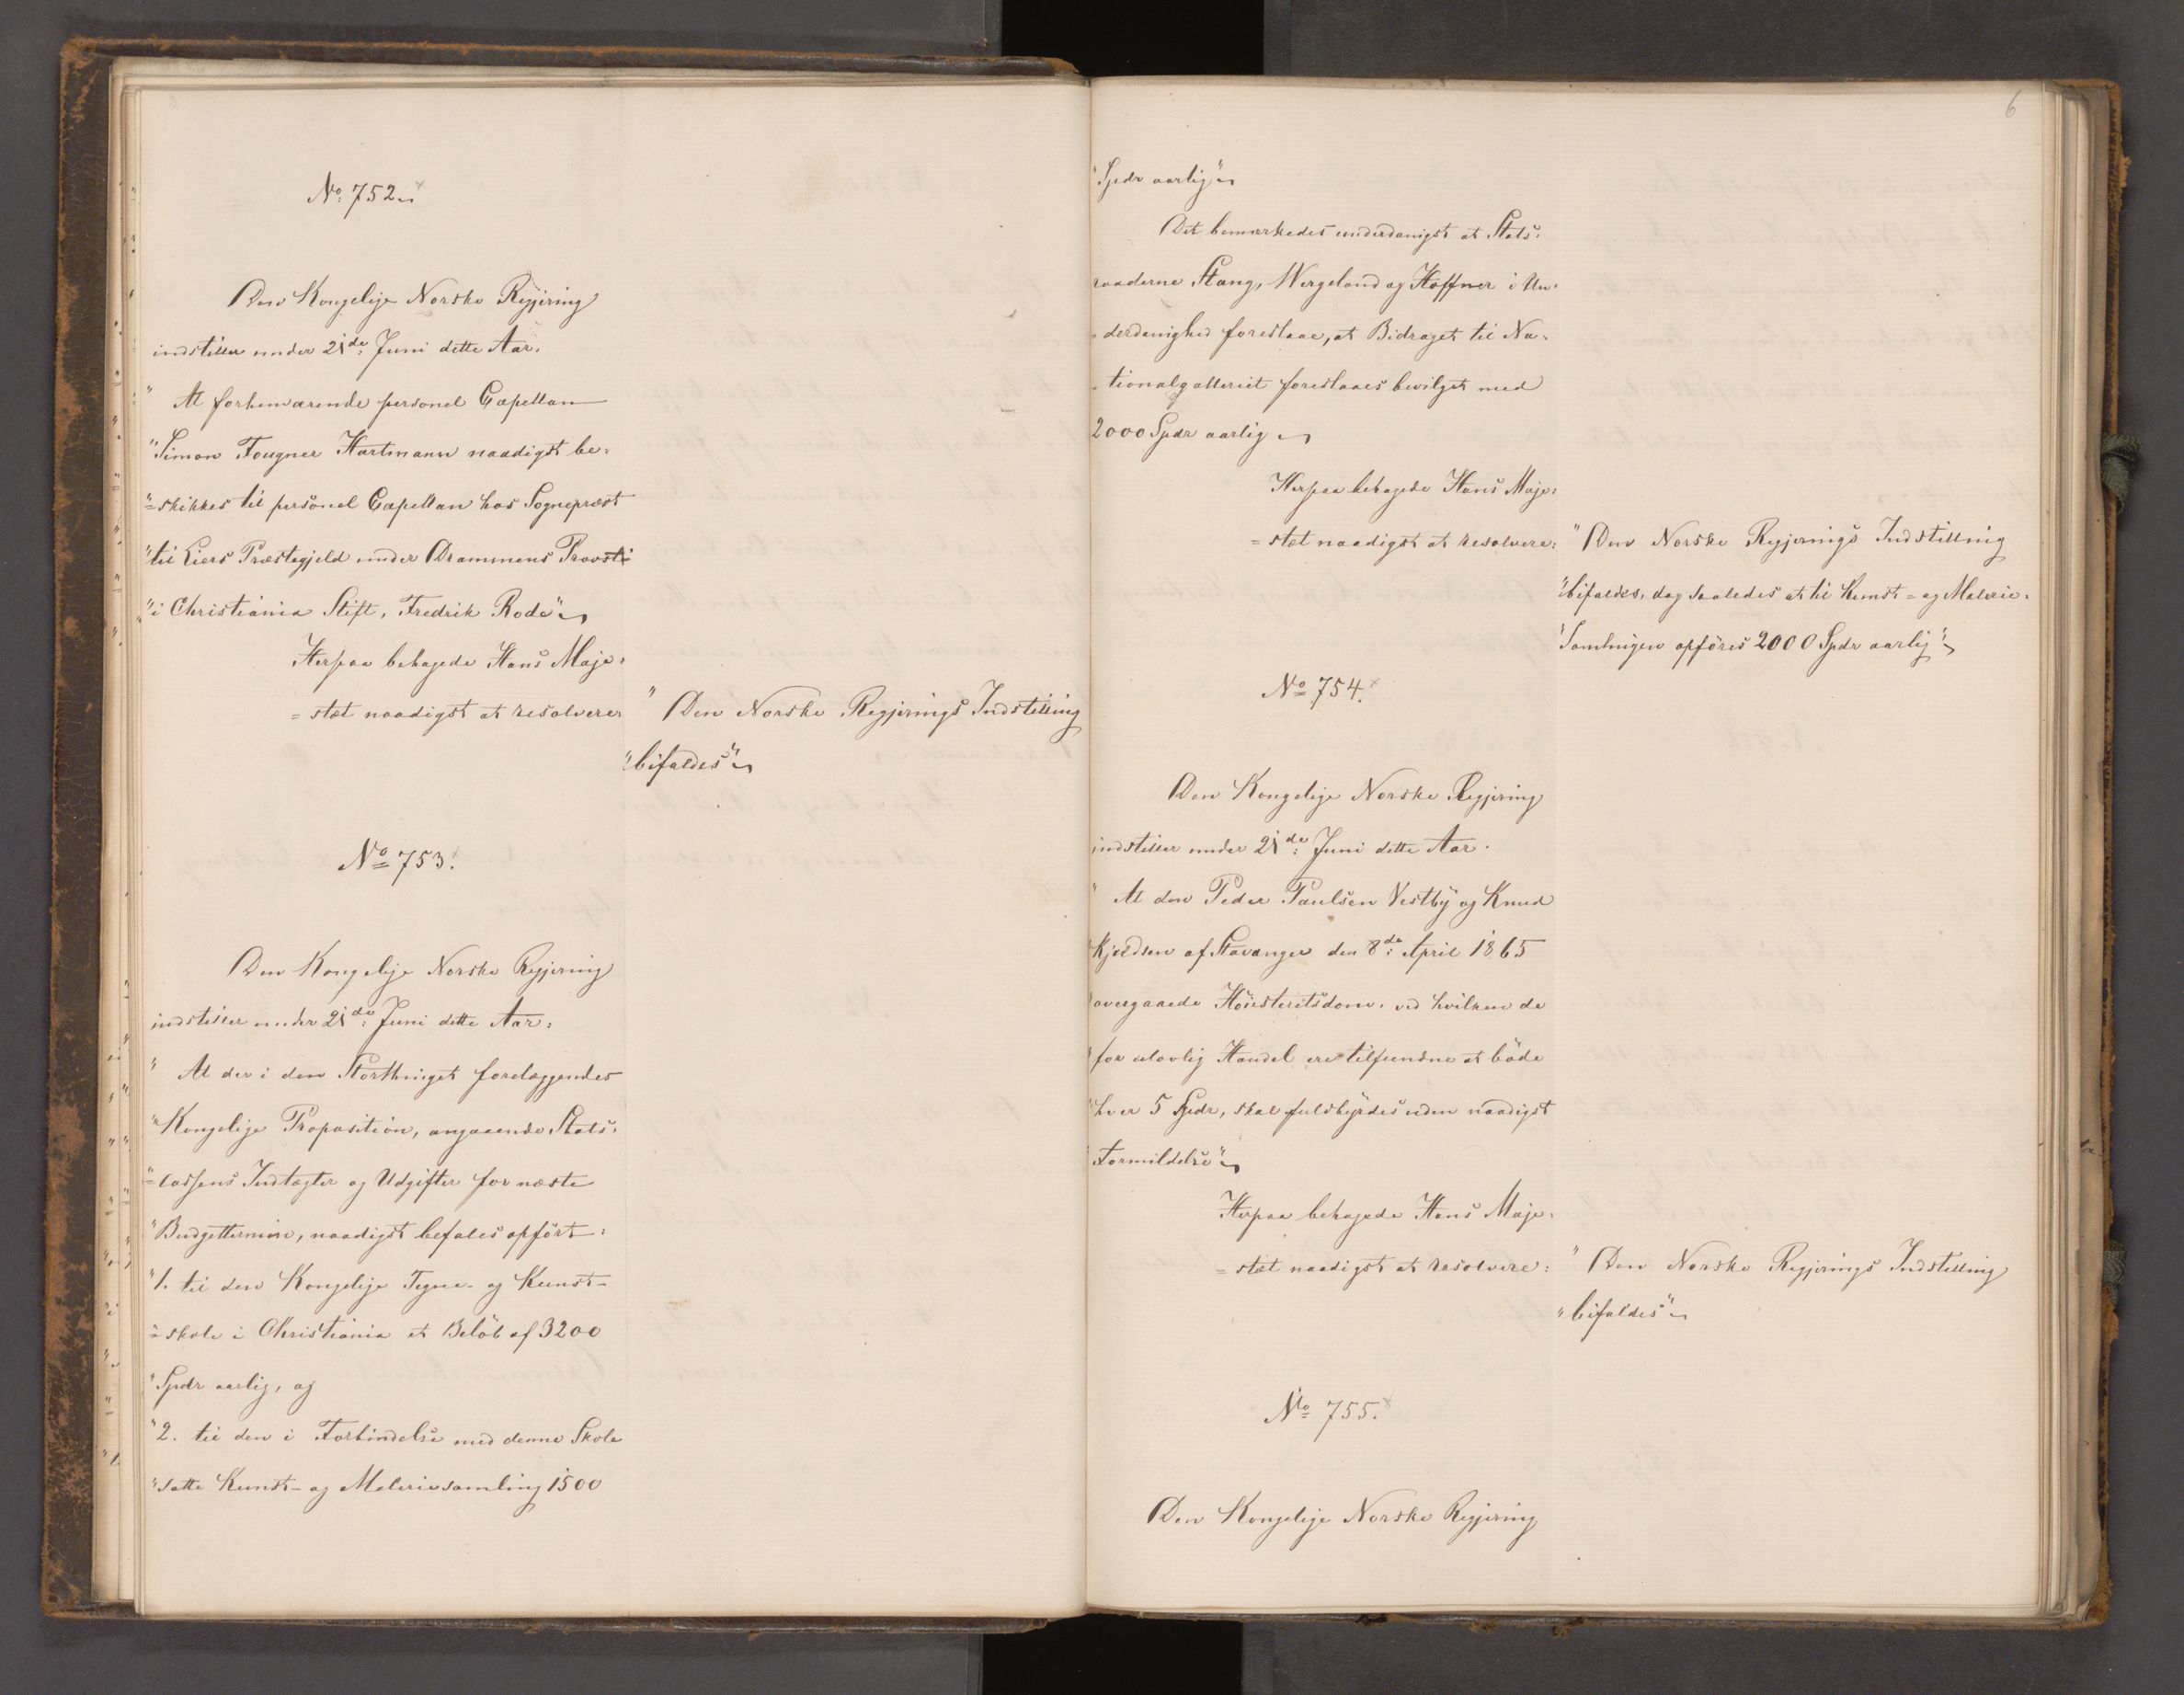 No: 752.
Den Kongelige Norske Regjering
indstiller under 21de: Juni dette Aar.
" At forhenværende personel Capellan
"Simon Fougner Hartmann naadigst be=
"=skikkes til personel Capellan hos Sognepræst
"til Liers Præstegjeld under Drammens Provsti
"i Christiania Stift, Fredrik Rode"
Herpaa behagede Hans Maje=
=stæt naadigst at resolvere:
" Den Norske Regjerings Indstilling
"bifaldes"
No 753.
Den Kongelige Norske Regjering
indstiller under 21de: Juni dette Aar:
" At der i den Storthinget forelæggendes
"Kongelige Proposition, angaaende Stats=
"=cassens Indtægter og Udgifter for næste
"Budgettermin, naadigst befales opført:
"1. til den Kongelige Tegne- og Kunst-
"=skole i Christiania et Beløb af 3200
"Spdr aarlig, og
"2. til den i Forbindelse med denne Skole
"satte Kunst- og Maleriesamling 1500
6
"Spdr aarlig"
Det bemærkedes underdanigst at Stats=
raaderne Stang, Wergeland og Haffner i Un=
=derdanighed foreslaae, at Bidraget til Na=
=tionalgalleriet foreslaaes bevilget med
2000 Spdr aarlig
Herpaa behagede Hans Maje=
=stæt naadigst at resolvere:
" Den Norske Regjerings Indstilling
"bifaldes, dog saaledes at til Kunst= og Malerie=
"Samlingen opføres 2000 Spdr aarlig"
No 754.
Den Kongelige Norske Regjering
indstiller under 21de: Juni dette Aar.
" At den Peder Paulsen Vestby og Knud
"Kjeldsen af Stavanger den 8de: April 1865
"overgaaede Høiesteretsdom, ved hvilken de
"for ulovlig Handel ere tilfundne at bøde
"hver 5 Spdr, skal fuldbyrdes uden naadigst
"Formildelse"
Herpaa behagede Hans Maje=
=stæt naadigst at resolvere:
" Den Norske Regjerings Indstilling
"bifaldes"
No 755.
Den Kongelige Norske Regjering